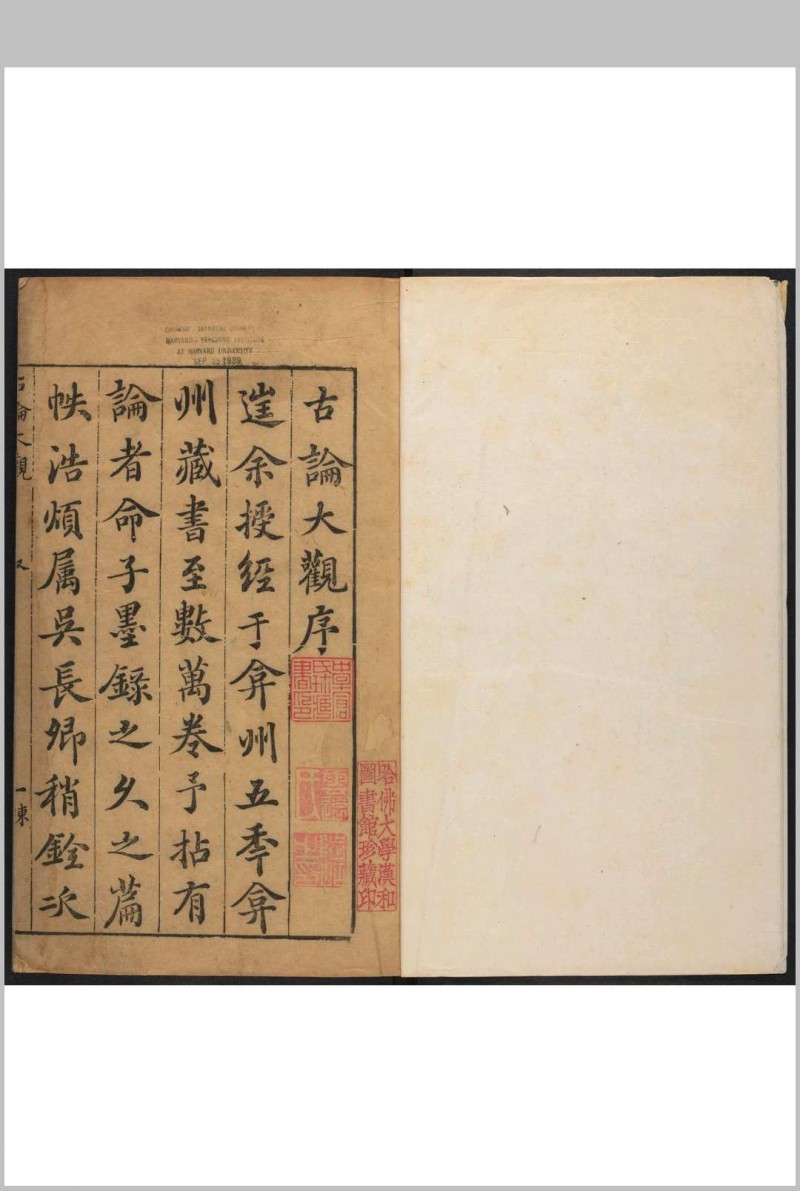 哈佛大學漢和
圖書館珍藏印
古論大觀序
余授經于弇州五季弇
州藏書至數萬卷予拈有
論者命子墨錄之久之篇
帙浩煩属吳長卿稍銓次
古論大觀 叙 一 東
CHINESE - JAPANESE LIBRARY
HARVARD - YENCHING INSTITUTE
AT HARVARD UNIVERSITY
SEP 1939